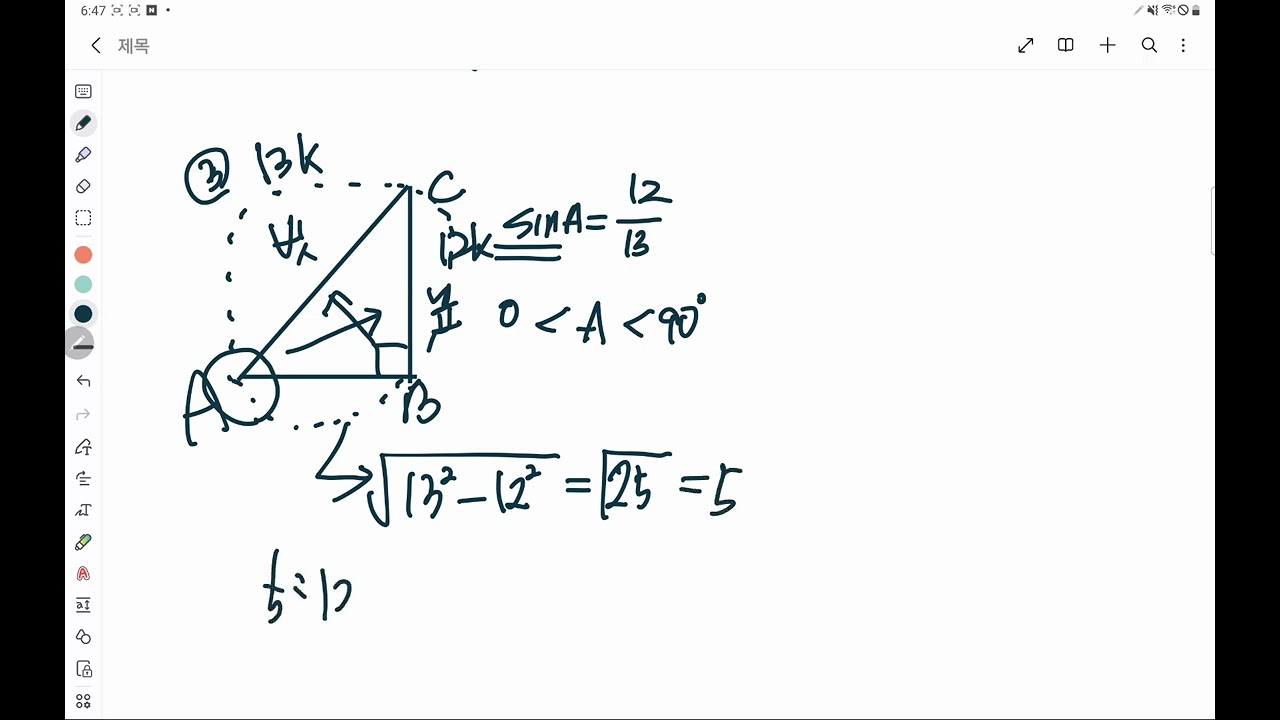 6:47
제목
③ 13k
C
12k sinA = 12/13
0 < A < 90°
A
B
√13² - 12² = √25 = 5
5 : 1